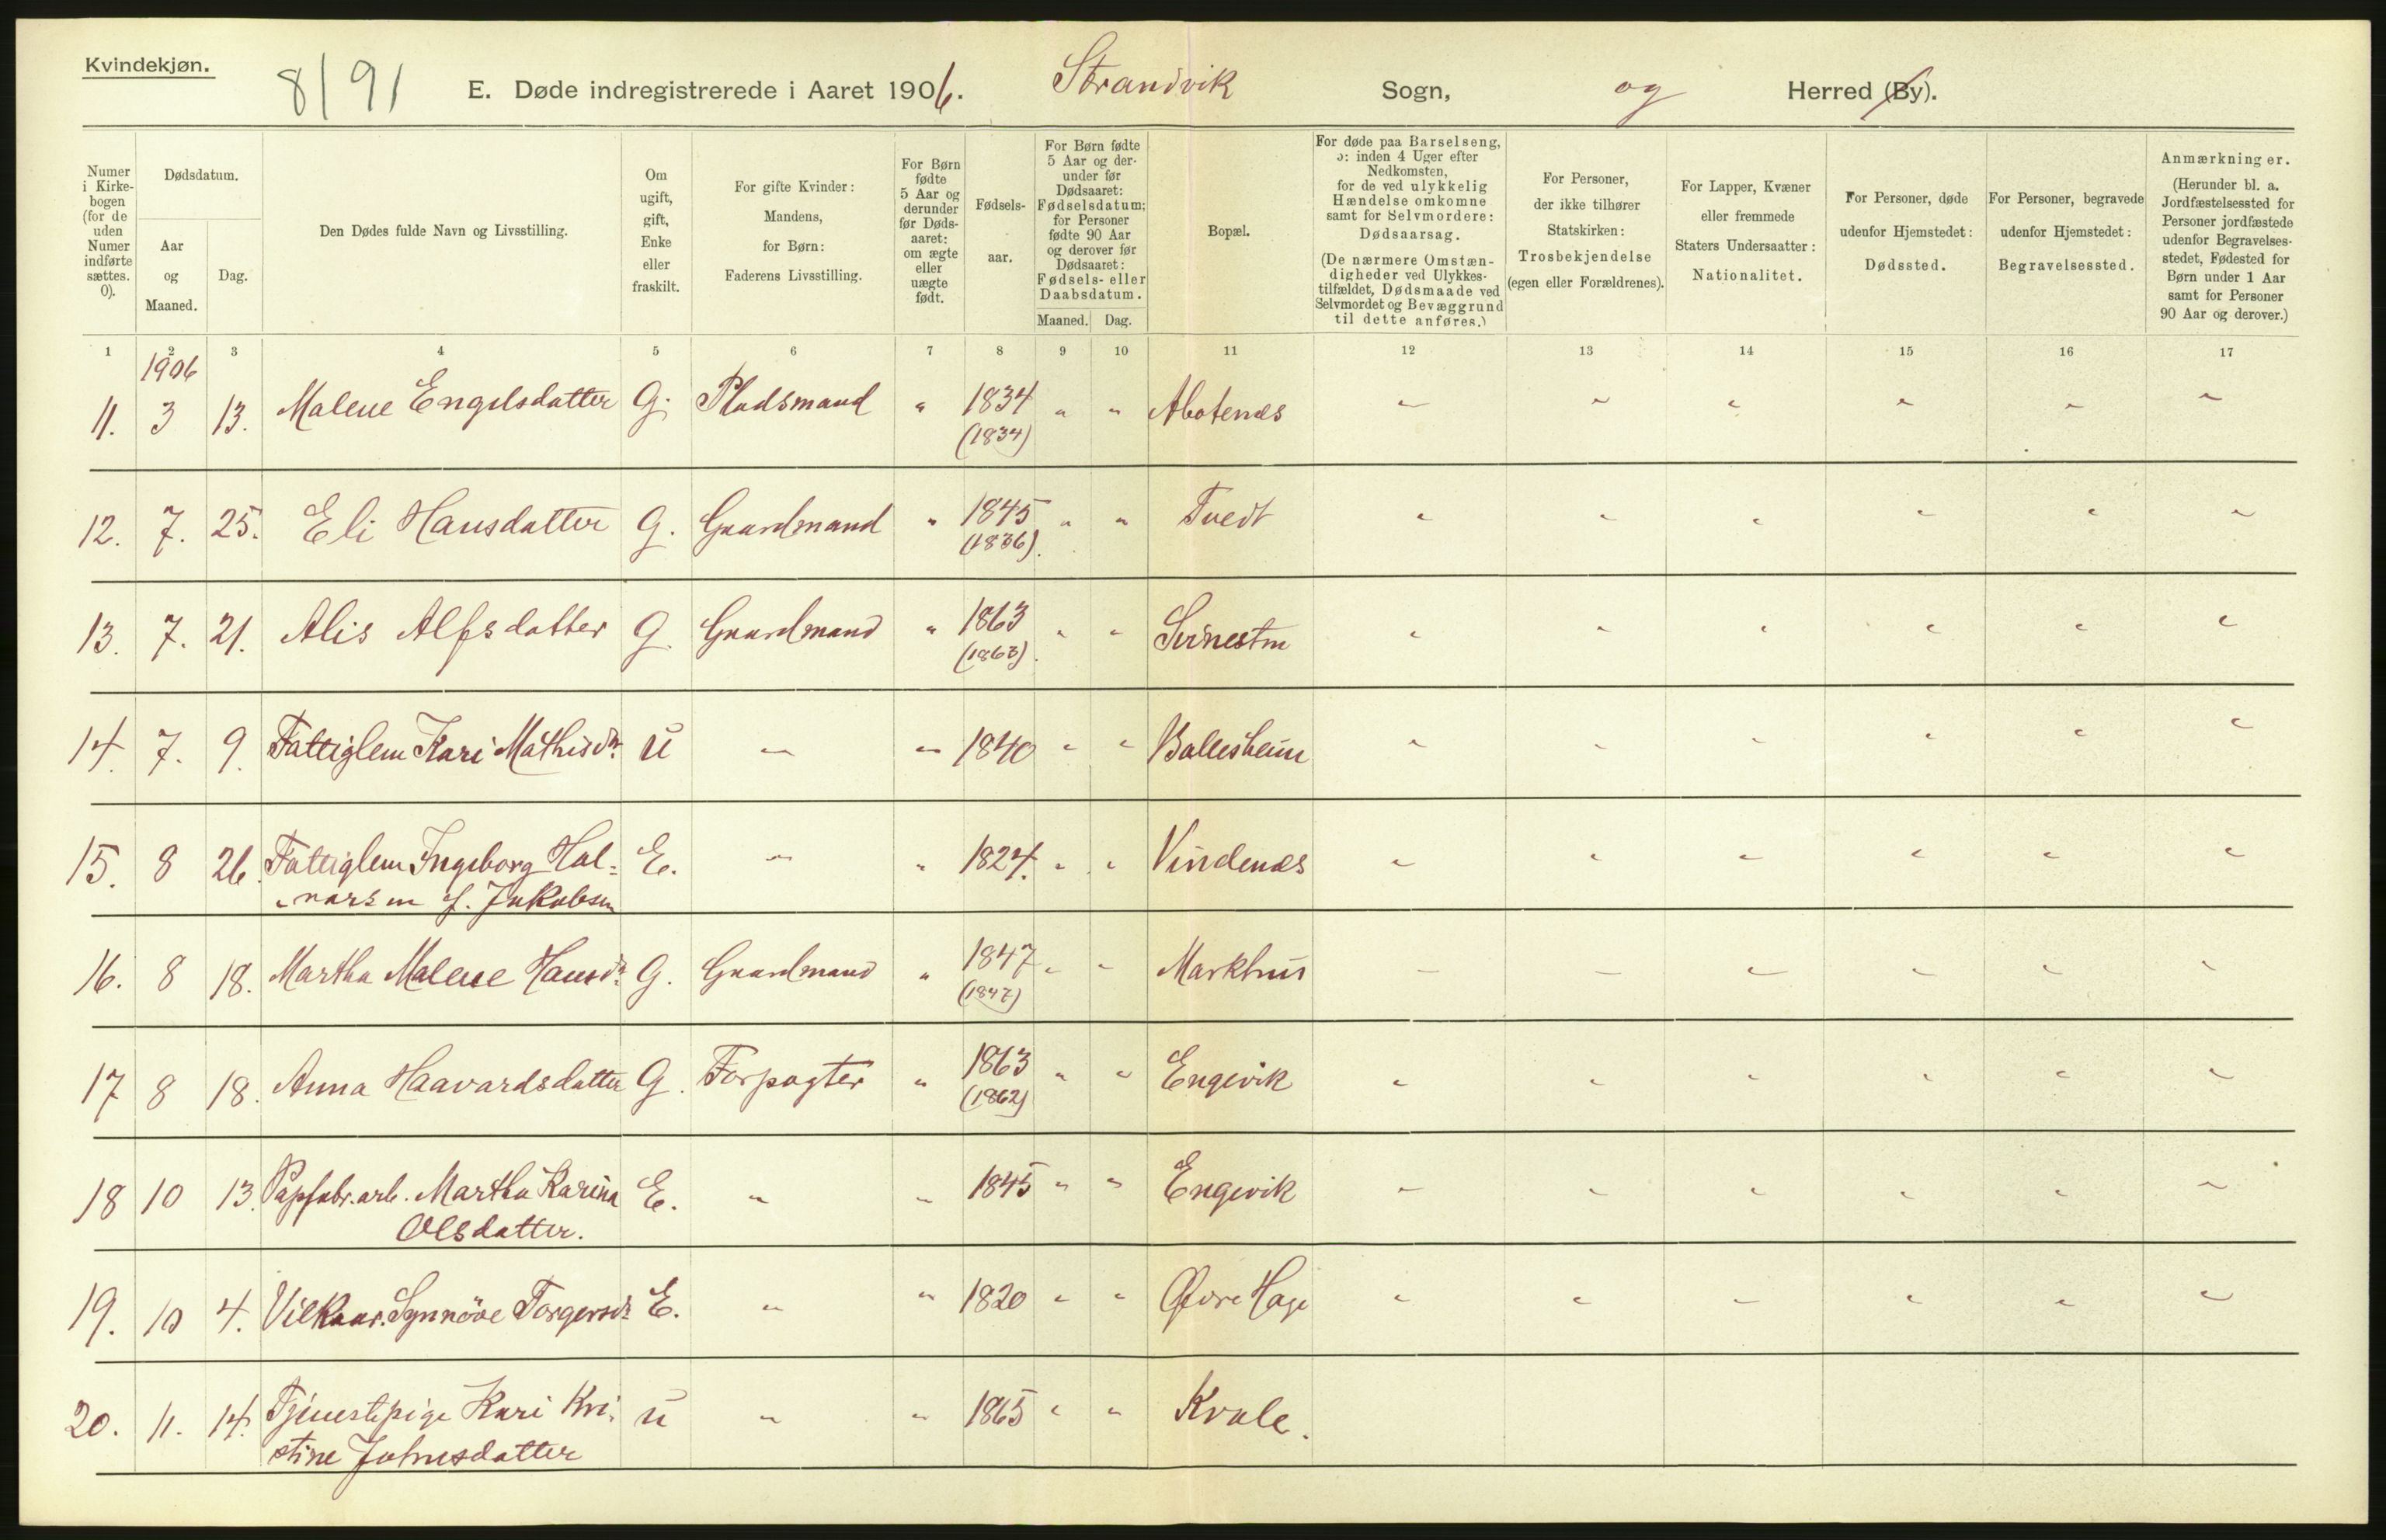 Kvindekjøn.
8/91
E. Døde indregistrerede i Aaret 1906. Strandvik Sogn, og Herred (By).
Numer i Kirke-bogen (for de uden Numer indførte sættes. 0).
Dødsdatum.
Aar og Maaned.
Dag.
Den Dødes fulde Navn og Livsstilling.
Om ugift, gift, Enke eller fraskilt.
For gifte Kvinder: Mandens, for Børn: Faderens Livsstilling.
For Børn fødte 5 Aar og derunder før Døds-aaret: om ægte eller uægte født.
Fødsels-aar.
For Børn fødte 5 Aar og der-under før Dødsaaret: Fødselsdatum; for Personer fødte 90 Aar og derover før Dødsaaret: Fødsels- eller Daabsdatum.
Maaned. Dag.
Bopæl.
For døde paa Barselseng, ɔ: inden 4 Uger efter Nedkomsten, for de ved ulykkelig Hændelse omkomne samt for Selvmordere: Dødsaarsag.
(De nærmere Omstæn-digheder ved Ulykkes-tilfældet, Dødsmaade ved Selvmordet og Bevæggrund til dette anføres.)
For Personer, der ikke tilhører Statskirken: Trosbekjendelse (egen eller Forældrenes).
For Lapper, Kvæner eller fremmede Staters Undersaatter: Nationalitet.
For Personer, døde udenfor Hjemstedet: Dødssted.
For Personer, begravede udenfor Hjemstedet: Begravelsessted.
Anmærkninger.
(Herunder bl. a. Jordfæstelsessted for Personer jordfæstede udenfor Begravelses-stedet, Fødested for Børn under 1 Aar samt for Personer 90 Aar og derover.)
1 2 3 4 5 6 7 8 9 10 11 12 13 14 15 16 17
1906
11. 3 13. Malene Engelsdatter G. Pladsmand " 1834 " " " " " " " "
(1834)
12. 7. 25. Eli Hansdatter G. Gaardmand " 1845 " " Tvedt " " " " " "
(1836).
13. 7. 21. Alis Alfsdatter G. Gaardmand " 1863 " " " " " " " "
(1863).
14. 7. 9. Fattiglem Kari Mathisdr. u " " 1840 " " Ballesheim " " " " " "
15. 8 26. Fattiglem Ingeborg Hal- E. " " 1824. " " Vindenes " " " " " "
f. Jakobsen
16. 8 18. Martha Malene Hansdr. G. Gaardmand " 1847 " " Markhus " " " " " "
(1847)
17 8 18. Anna Haavardsdatter G. Forpagter " 1863 " " Engevik " " " " " "
(1862)
18 10 13. Papfabr. arb. Martha Karina E. " " 1845 " " Engevik " " " " " "
Olsdatter.
19. 10 4. Vilkaar. Synnöve Torgersdr. E. " " 1820 " " Øvre Hage " " " " " "
20. 11. 14. Tjenestepige Kari Kri- u " " 1865 " " Kvale.
stine Johnsdatter